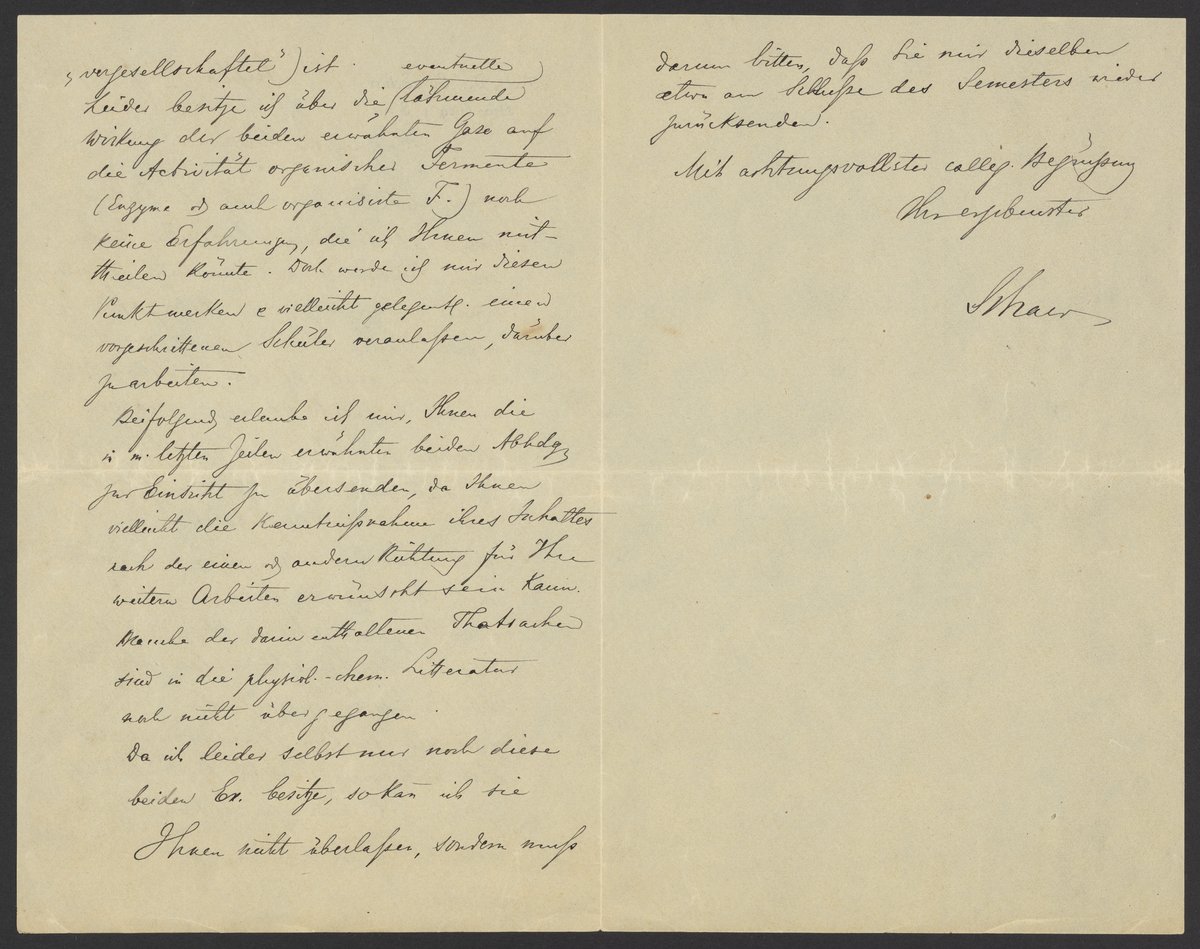 „vergesellschaftet") ist. eventuelle
Leider besitze ich über die (lähmende
Wirkung der beiden erwähnten Gase auf
die Activität organischer Fermente
(Enzyme od auch organisirte F.) noch
keine Erfahrungen, die ich Ihnen mit-
theilen könnte. Doch werde ich mir diesen
Punkt merken & vielleicht gelegentl. einen
vorgeschrittenen Schüler veranlaßen, darüber
zu arbeiten.
Beifolgend erlaube ich mir, Ihnen die
in m. letzten Zeilen erwähnten beiden Abhdlg
zur Einsicht zu übersenden, da Ihnen
vielleicht die Kenntnißnahme ihres Inhaltes
nach der einen od andern Richtung für Ihre
weitern Arbeiten erwünscht sein kann.
Manche der darin enthaltenen Thatsachen
sind in die physiol.-chem. Litteratur
noch nicht übergegangen.
Da ich leider selbst nur noch diese
beiden Ex. besitze, so kan̄ ich sie
Ihnen nicht überlaßen, sondern muß
darum bitten, daß Sie mir dieselben
etwa am Schluße des Semesters wieder
zurücksenden.
Mit achtungsvollster colleg. Begrüßung
Ihr ergebenster